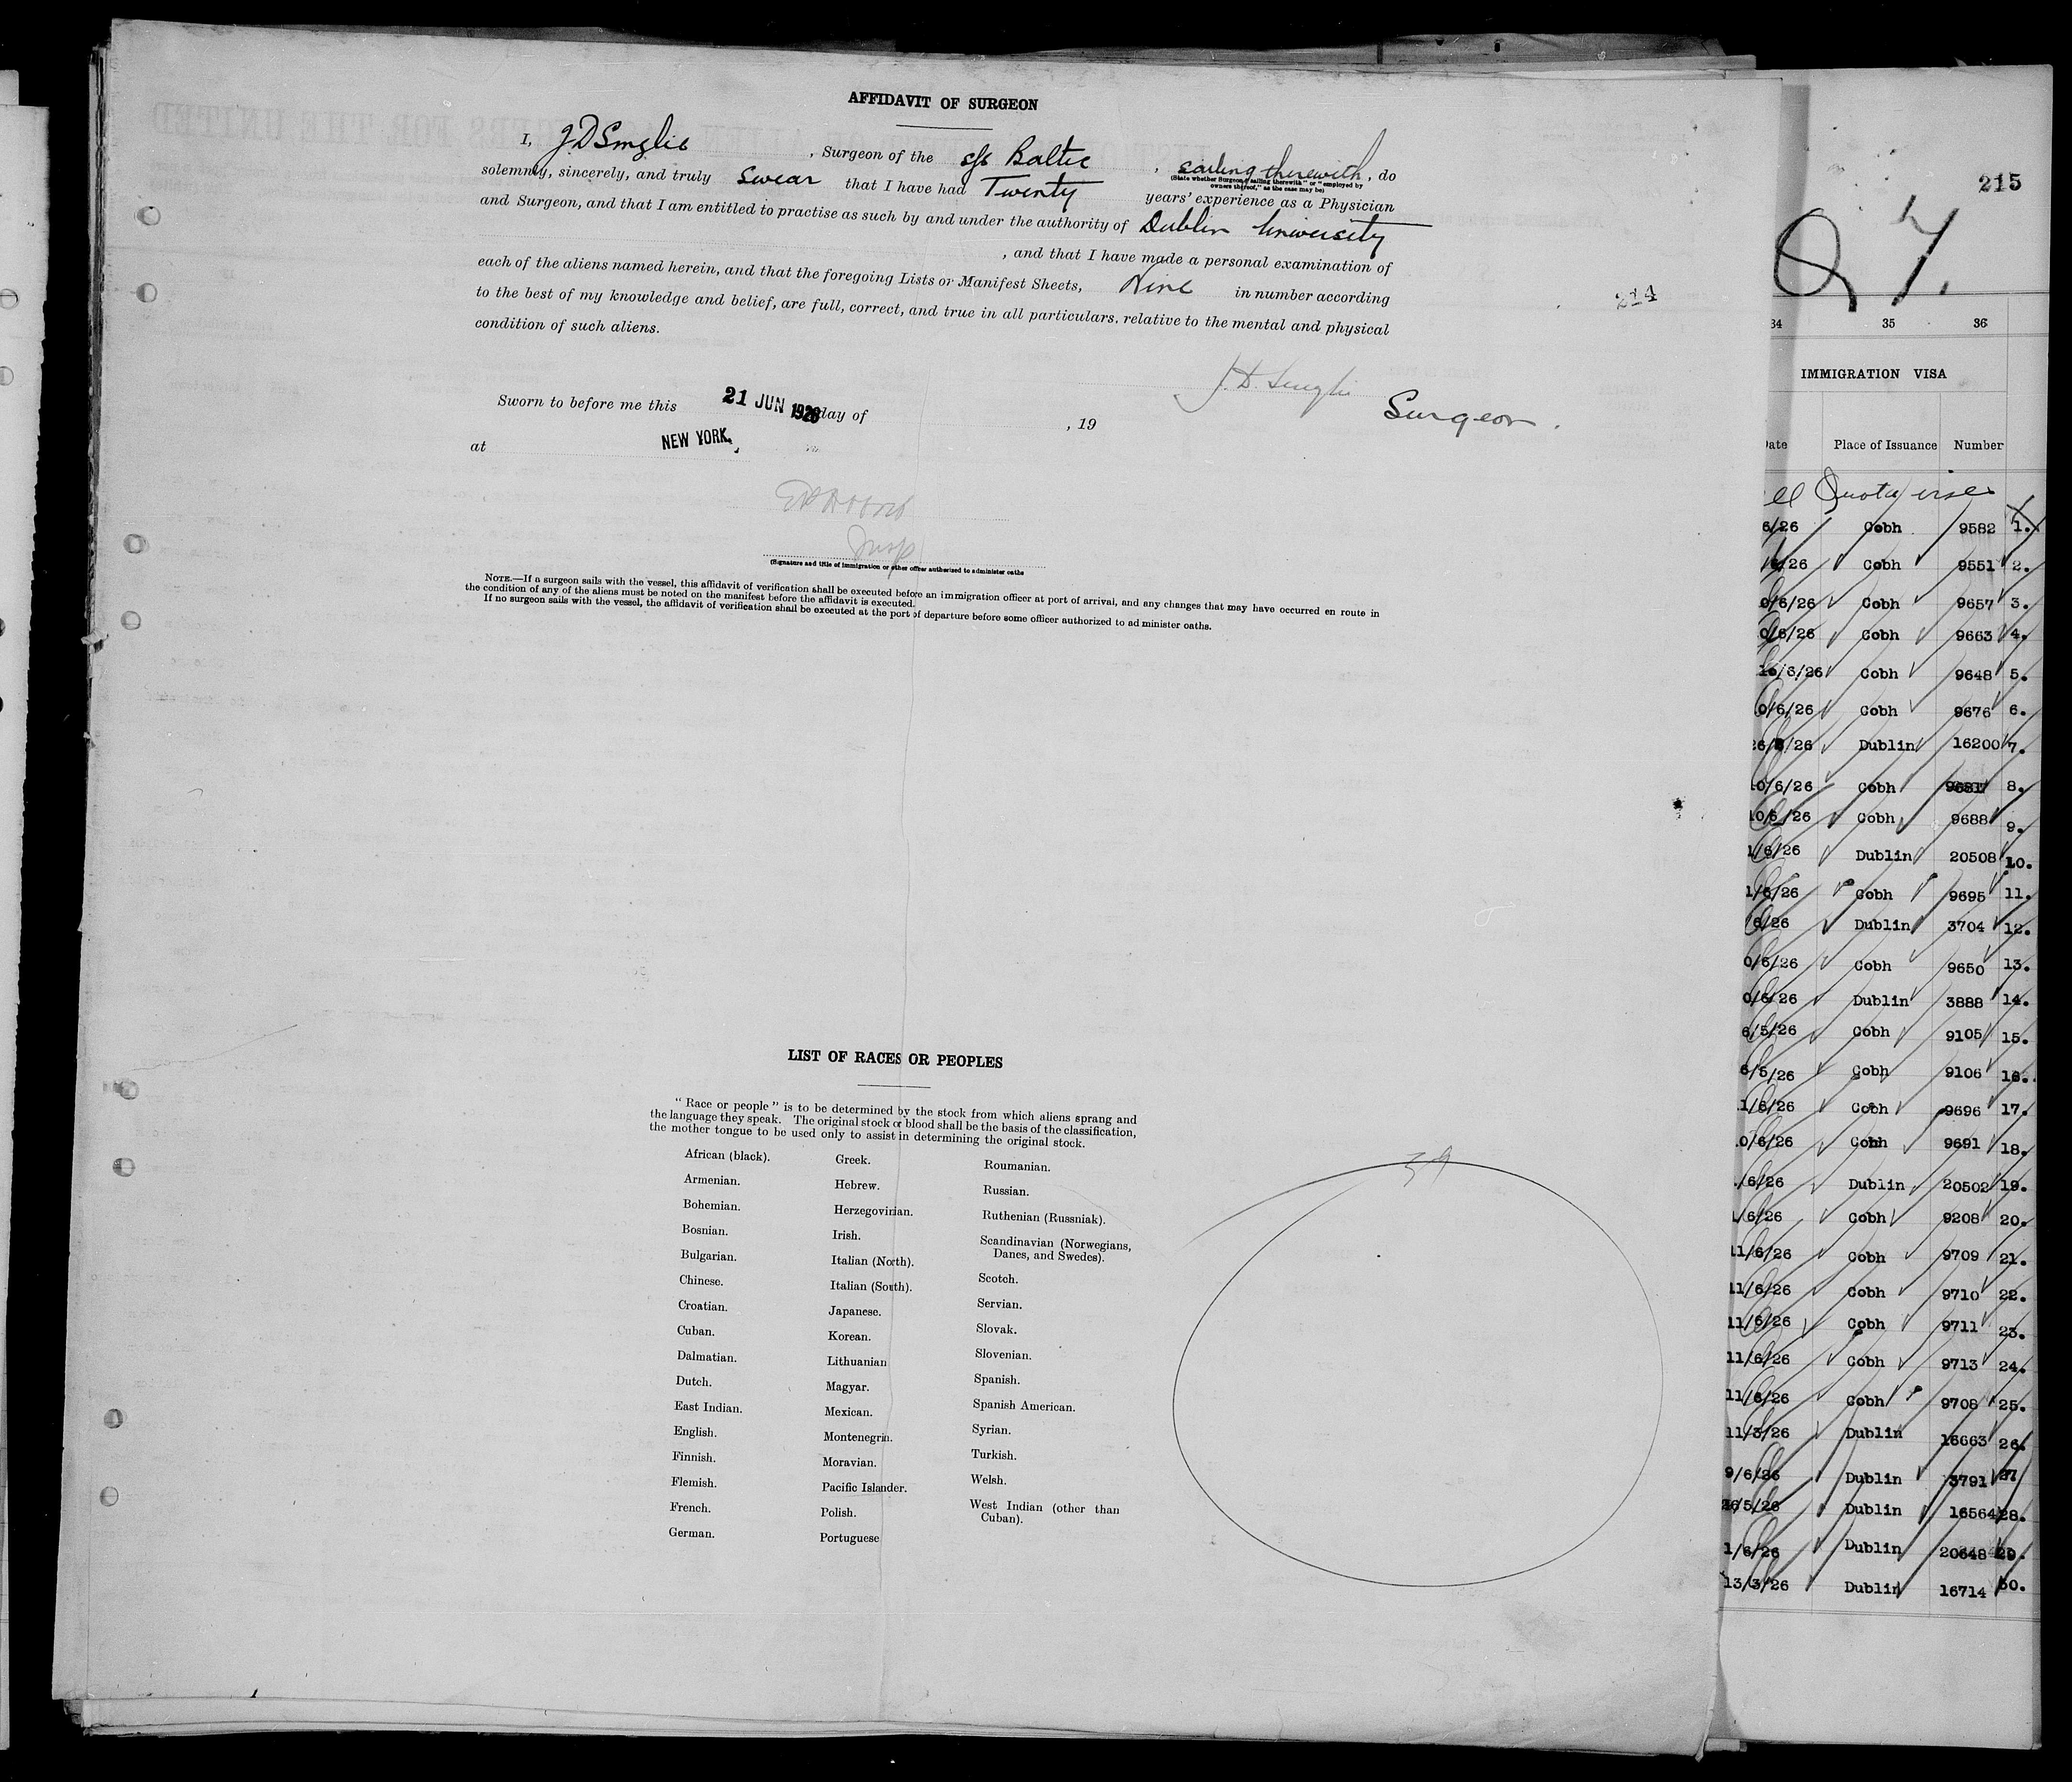 AFFIDAVIT OF SURGEON
I, J D Smylie, Surgeon of the s/s Baltic, sailing therewith, do
(State whether Surgeon "sailing therewith" or "employed by
owners thereof," as the case may be)
solemnly, sincerely, and truly Swear that I have had Twenty years' experience as a Physician
and Surgeon, and that I am entitled to practise as such by and under the authority of Dublin University
, and that I have made a personal examination of
each of the aliens named herein, and that the foregoing Lists or Manifest Sheets, Nine in number according
to the best of my knowledge and belief, are full, correct, and true in all particulars. relative to the mental and physical
condition of such aliens.
214
Surgeon.
Sworn to before me this 21 JUN 1926 day of , 19
at NEW YORK,
Insp
(Signature and title of immigration or other officer authorized to administer oaths
NOTE.—If a surgeon sails with the vessel, this affidavit of verification shall be executed before an immigration officer at port of arrival, and any changes that may have occurred en route in
the condition of any of the aliens must be noted on the manifest before the affidavit is executed.
If no surgeon sails with the vessel, the affidavit of verification shall be executed at the port of departure before some officer authorized to ad minister oaths.
LIST OF RACES OR PEOPLES
"Race or people" is to be determined by the stock from which aliens sprang and
the language they speak. The original stock or blood shall be the basis of the classification,
the mother tongue to be used only to assist in determining the original stock.
African (black).
Armenian.
Bohemian.
Bosnian.
Bulgarian.
Chinese.
Croatian.
Cuban.
Dalmatian.
Dutch.
East Indian.
English.
Finnish.
Flemish.
French.
German.
Greek.
Hebrew.
Herzegovinian.
Irish.
Italian (North).
Italian (South).
Japanese.
Korean.
Lithuanian
Magyar.
Mexican.
Montenegrin.
Moravian.
Pacific Islander.
Polish.
Portuguese
Roumanian.
Russian.
Ruthenian (Russniak).
Scandinavian (Norwegians,
Danes, and Swedes).
Scotch.
Servian.
Slovak.
Slovenian.
Spanish.
Spanish American.
Syrian.
Turkish.
Welsh.
West Indian (other than
Cuban).
39
215
34 35 36
IMMIGRATION VISA
Date Place of Issuance Number
all Quota visas
6/26 Cobh 9582 1.
/26 Cobh 9551 2.
0/6/26 Cobh 9657 3.
0/6/26 Cobh 9663 4.
10/6/26 Cobh 9648 5.
0/6/26 Cobh 9676 6.
26/ /26 Dublin 16200 7.
10/6/26 Cobh 8.
10/6/26 Cobh 9688 9.
1/6/26 Dublin 20508 10.
1/6/26 Cobh 9695 11.
/6/26 Dublin 3704 12.
0/6/26 Cobh 9650 13.
0/6/26 Dublin 3888 14.
6/5/26 Cobh 9105 15.
6/5/26 Cobh 9106 16.
11/6/26 Cobh 9696 17.
10/6/26 Cobh 9691 18.
1/6/26 Dublin 20502 19.
1/6/26 Cobh 9208 20.
11/6/26 Cobh 9709 21.
11/6/26 Cobh 9710 22.
11/6/26 Cobh 9711 23.
11/6/26 Cobh 9713 24.
11/6/26 Cobh 9708 25.
11/3/26 Dublin 16663 26.
9/6/26 Dublin 3791 27
26/5/26 Dublin 16564 28.
1/6/26 Dublin 20648 29.
13/3/26 Dublin 16714 30.